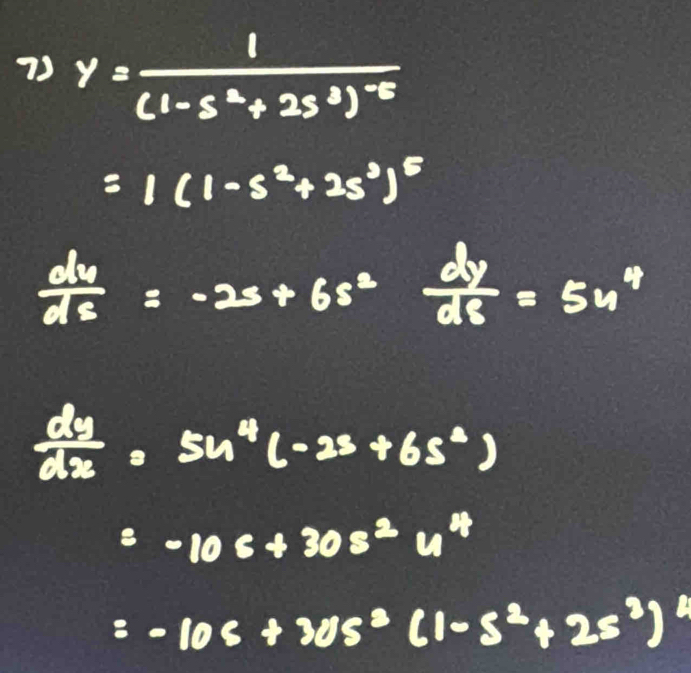 7) y = 1/(1-s²+2s³)⁻⁵
= 1(1-s²+2s³)⁵
du/ds = -2s+6s² dy/ds = 5u⁴
dy/dx = 5u⁴(-2s+6s²)
= -10s+30s² u⁴
= -10s+30s² (1-s²+2s³)⁴